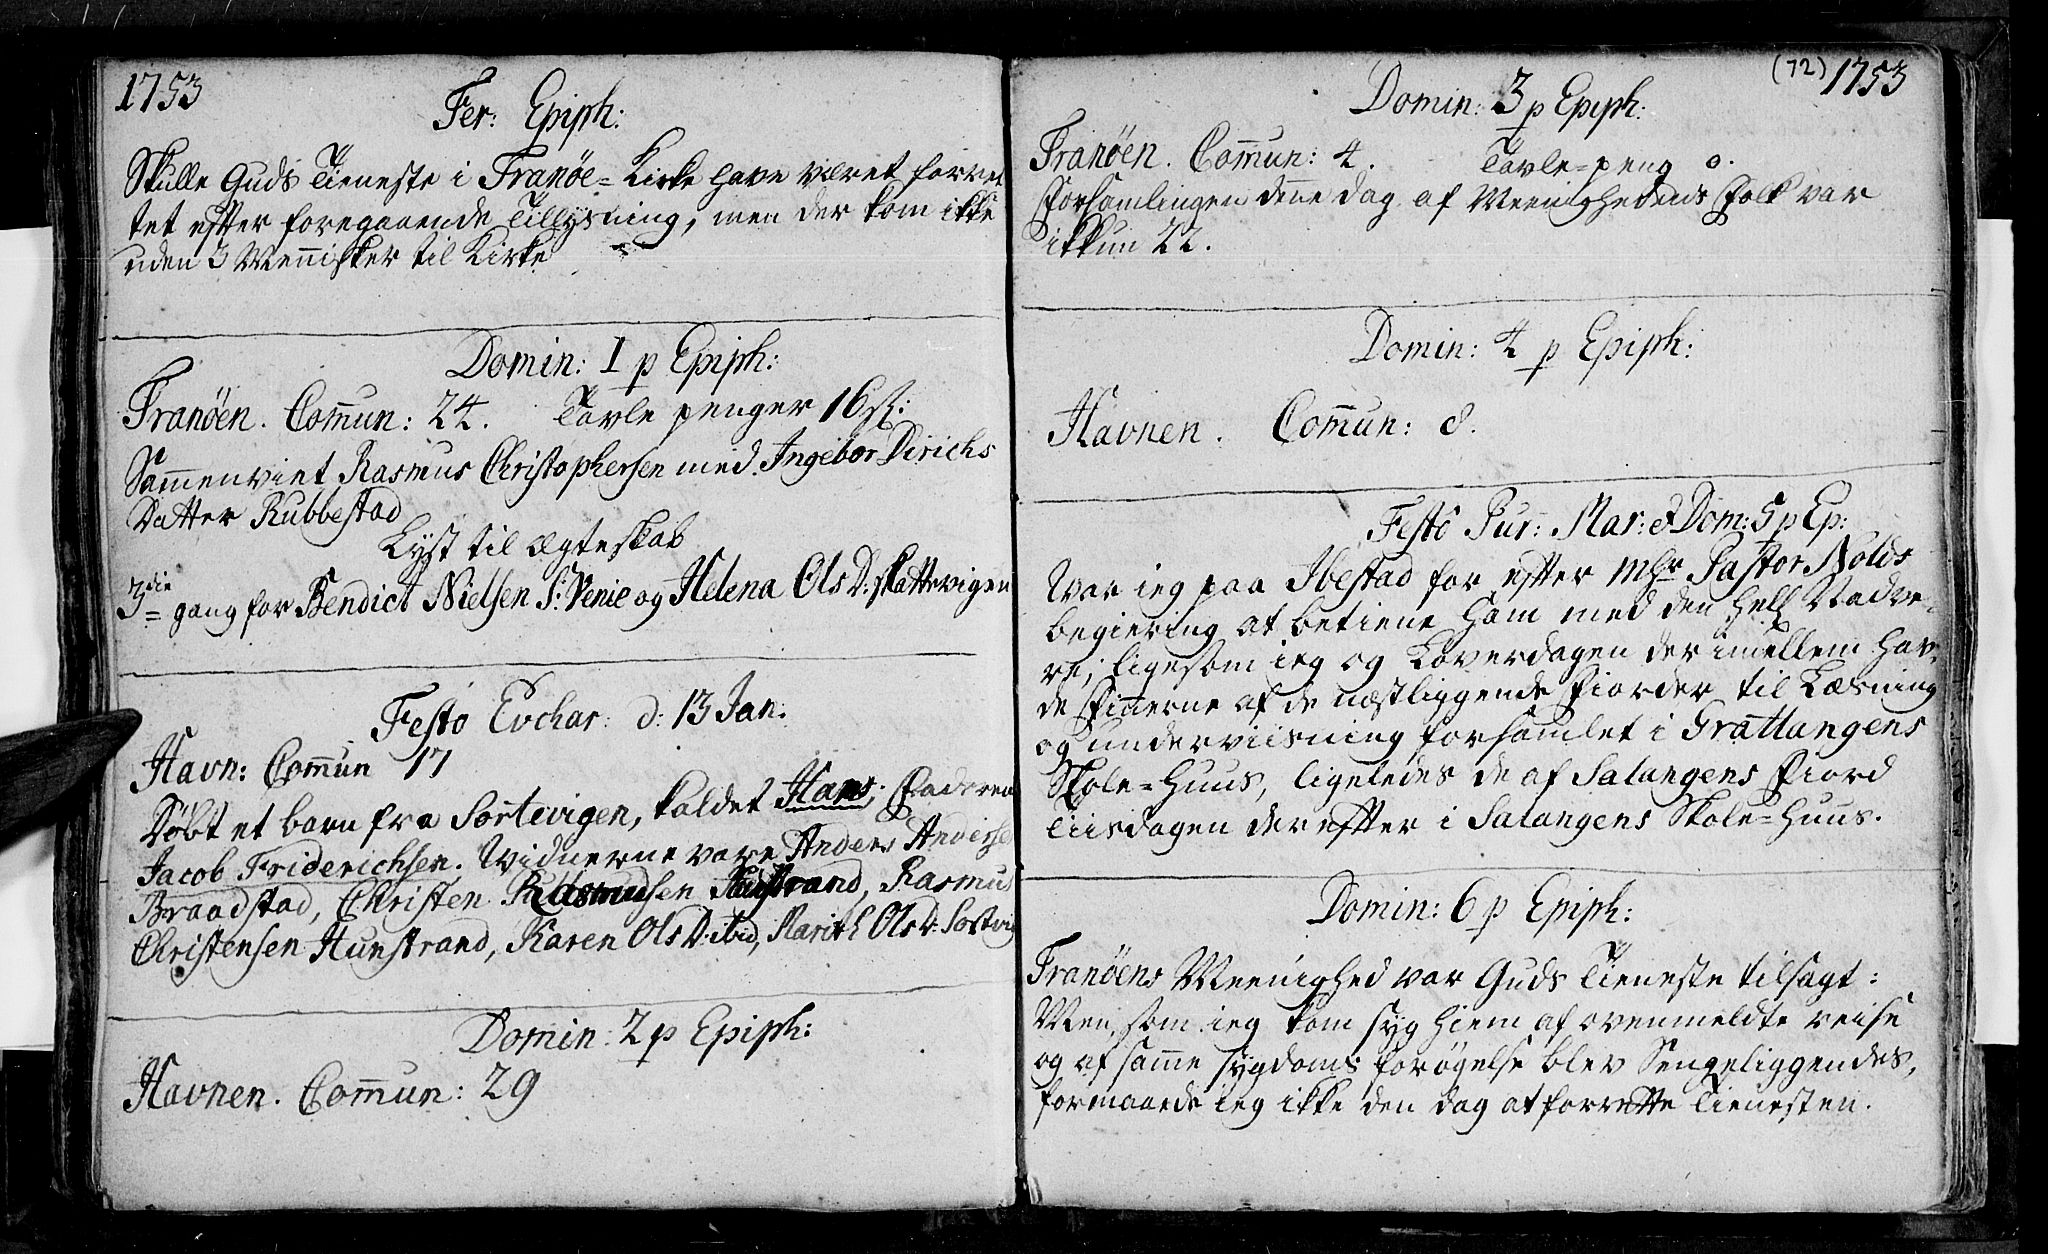 1753
Fer: Epiph:
Skulle Guds Tieneste i Tranøe-Kirke have været forret
tet effter foregaaende Tillysning, men der kom ikke
uden 3 Mennisker til Kirke
Domin: 1 p Epiph:
Tranöen. Com̅un: 24. Tavle penger 16 ß:
Sam̅enviet Rasmus Christophersen med Ingebor Dirichs
Datter Rubbestad
Lyst til Ægteskab
3die gang for Bendict Nielsen S: Venie og Helena Ols D: Skattevigen
Festo Evchar: d: 13 Jan:
Havn: Com̅un 17
Døbt et barn fra Sortevigen, kaldet Hans; Faderen
Jacob Friderichsen. Vidnerne vare Anders Anderse
Braadstad, Christen Rasmusen Hunstrand, Rasmus
Christensen Hunstrand, Karen Ols D. ibid, Marith Ols D: Sortvig
Domin: 2 p Epiph:
Havnen. Com̅un: 29
(72) 1753
Domin: 3 p Epiph:
Tranöen. Com̅un: 4. Tavle-peng 0.
Forsamlingen den̅e dag af Meenighedens Folk var
ikkun 22.
Domin: 4 p Epiph:
Havnen. Com̅un: 8.
Festo Pur: Mar: & Dom: 5 p Ep:
Var ieg paa Ibestad for effter Mhr Pastor Nolds
begiering at betiene ham med den hell Nadve-
re; ligesom ieg og Løverdagen der imellem hav-
de Fin̅erne af de næstliggende Fiorder til Læsning
og underviisning forsamlet i Grattangens
Skole-Huus, ligeledes de af Salangens Fiord
Tiisdagen dereffter i Salangens Skole-Huus.
Domin: 6 p Epiph:
Tranöens Meenighed var Guds Tieneste tilsagt:
Men, som ieg kom syg hiem af ovenmeldte reise
og af sam̅e sygdoms forøgelse blev Sengeliggendes,
formaaede ieg ikke den dag at forrette Tienesten.